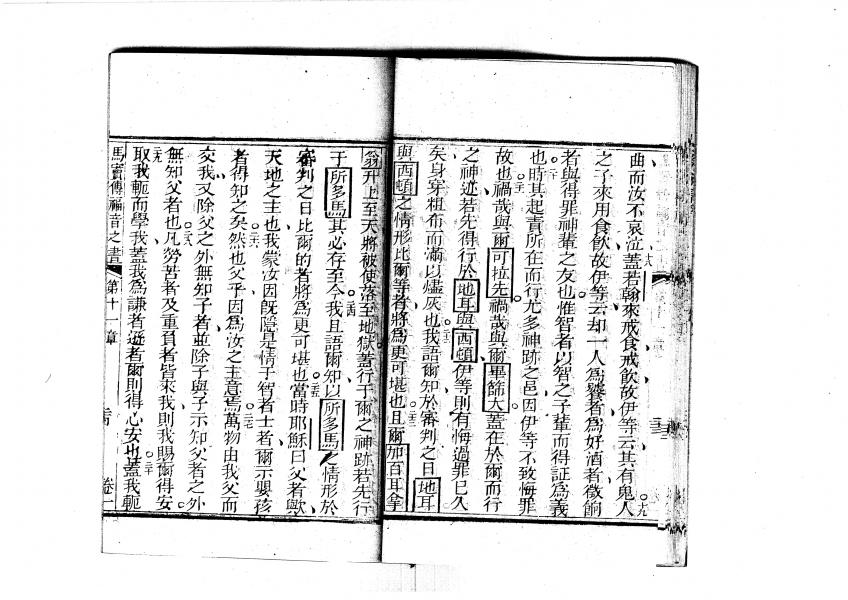 曲而汝不哀泣蓋若翰來戒食戒飲故伊等云其有鬼人
之子來用食飲故伊等云却一人為饕者為好酒者徵餉
者與得罪神輩之友也惟智者以智之子輩而得証為義
也時其起責所在而行尤多神跡之邑因伊等不致悔罪
故也禍哉與爾可拉先禍哉與爾畢篩大蓋在於爾而行
之神迹若先得行於地耳與西頓伊等則有悔過罪已久
矣身穿粗布而滿以燼灰也我語爾知於審判之日地耳
與西頓之情形比爾等者將為更可堪也且爾加百耳拿
翁升上至天將被使落至地獄蓋行于爾之神跡若先行
于所多馬其必存至今我且語爾知以所多馬之情形於
審判之日比爾的者將為更可堪也當時耶穌曰父者歟
天地之主也我蒙汝因既隱是情于智者士者爾示嬰孩
者得知之矣然也父乎因為汝之主意焉萬物由我父而
交我又除父之外無知子者並除子與子示知父者之外
無知父者也凡勞苦者及重負者皆來我則我賜爾得安
取我軛而學我蓋我為謙者遜者爾則得心安也蓋我軛
馬竇傳福音之書 第十一章 卷一